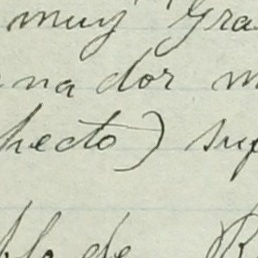 muy Gra
nador m
hecto) sup
blo de R